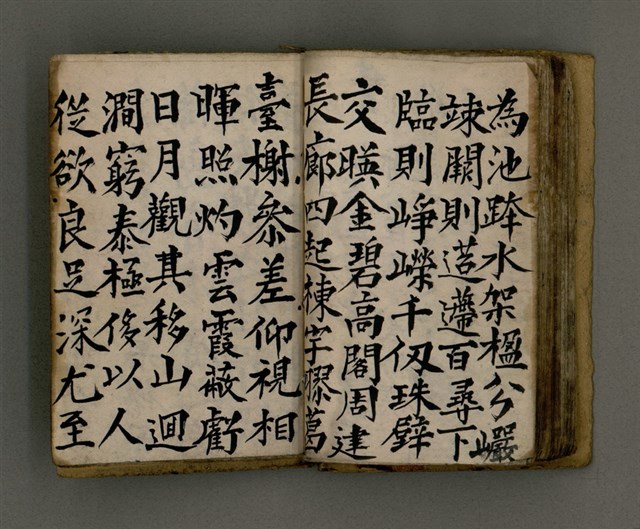 為池跨水架楹分巖
竦闕則迢遰百尋下
臨則崢嶸千仭珠璧
交暎金碧高閣周建
長廊四起棟宇膠葛
臺榭叅差仰視相
暉照灼雲霞蔽虧
日月觀其移山迴
澗窮泰極侈以人
從欲良足深尤至